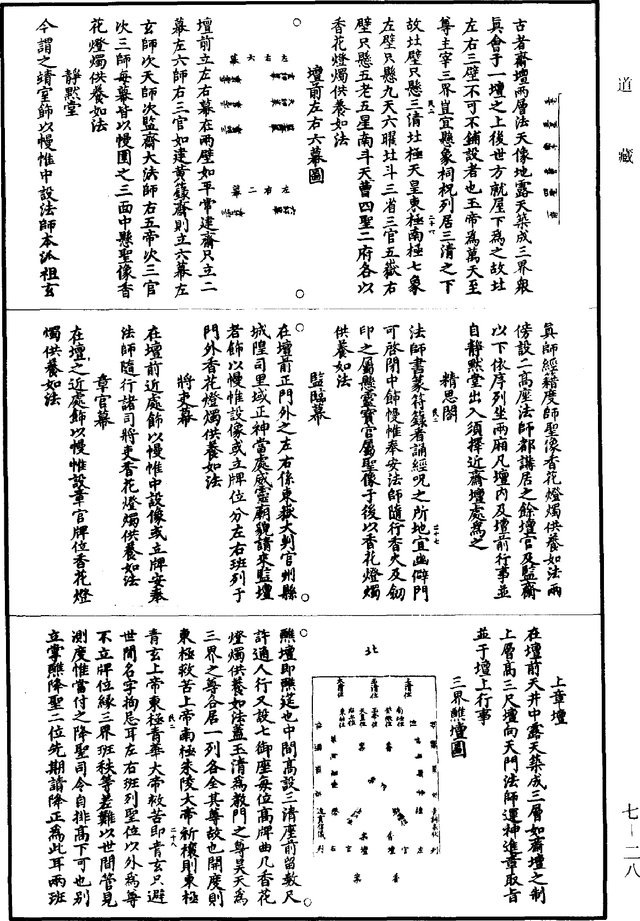 道藏
古者齋壇兩層法天像地露天築成三界眾
真會于一壇之上後世方就屋下為之故壯
左右三壁不可不鋪設者也玉帝為萬天至
尊主宰三界豈宜懸象祠祝列居三清之下
故壯壁只懸三清壯極天皇東極南極七象
左壁只懸九天六曜壯斗三省三官五嶽右
壁只懸五老五星南斗天曹四聖二府各以
香花燈燭供養如法
壇前左右六幕圖
左右六幕
左右二幕
壇前立左右幕在兩壁如平常建齋只立二
幕左六師右三官如建黃籙齋則立六幕左
玄師次天師次監齋大法師右五帝次三官
次三師每幕皆以幔圍之三面中懸聖像香
花燈燭供養如法
靜默堂
今謂之靖室飾以幔帷中設法師本派祖玄
真師經籍度師聖像香花燈燭供養如法兩
傍設二高座法師都講居之餘壇官及監齋
以下依序列坐兩廂凡壇內及壇前行事並
自靜默堂出入須擇近齋壇處為之
精思閣
法師書篆符籙者誦經呪之所地宜幽僻門
可啓閉中飾幔帷奉安法師隨行香火及劍
印之屬懸靈寶官屬聖像于後以香花燈燭
供養如法
監臨幕
在壇前正門外之左右係東嶽大判官州縣
城隍司里域正神當處威靈廟貌請來監壇
者飾以幔帷設像或立牌位分左右班列于
門外香花燈燭供養如法
將吏幕
在壇前近處飾以幔帷中設像或立牌安奉
法師隨行諸司將吏香花燈燭供養如法
章官幕
在壇之近處飾以幔帷設章官牌位香花燈
燭供養如法
上章壇
在壇前天井中露天築成三層如齋壇之制
上層高三尺壇向天門法師運神進章取旨
並于壇上行事
三界醮壇圖
北
醮壇即醮筵也中間高設三清座前留數尺
許通人行又設七御座每位高牌曲几香花
燈燭供養如法蓋玉清為教門之尊昊天為
三界之尊各居一列各全其尊故也開度則
東極救苦上帝南極朱陵大帝祈禳則東極
青玄上帝東極青華大帝救苦即青玄只避
世間名字拘忌耳左右班列聖位以外為尊
不立牌位緣三界班秩等差難以世間管見
測度惟當付之降聖司令自排高下可也別
立掌醮降聖二位先期請降正為此耳兩班
七-二八